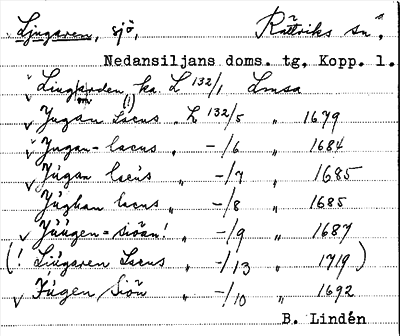 Ljugaren, sjö, Rättviks sn,
Nedansiljans doms. tg. Kopp. l.
Ljugarden ka. L 132/1 Lmsa
Jugan Lacus (!) L 132/5 " 1679
Jugan-lacus " -/6 " 1684
Júgan lacús " -/7 " 1685
Júghan lacus " -/8 " 1685
Júúgen-siöan! " -/9 " 1687
(! Liúgaren Lacus " -/13 " 1719)
Júgen Siön " -/10 " 1692
B. Lindén